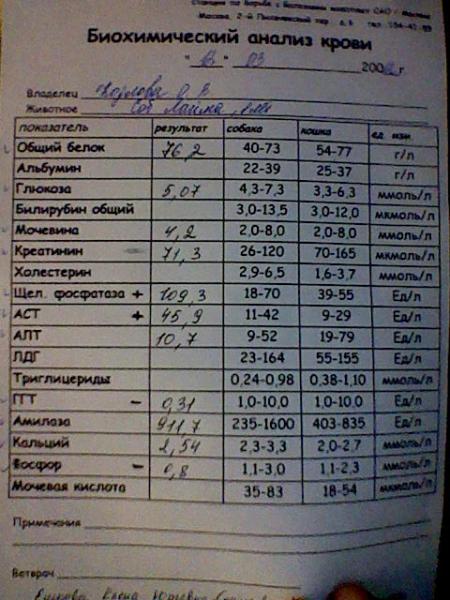 Станция по борьбе с болезнями животных САО г. Москвы
Москва, 2-й
Биохимический анализ крови
" 13 " 03 200 г
Владелец Козлова О. В.
Животное Соб Лайка
показатель результат собака кошка ед. изм.
Общий белок 76,2 40-73 54-77 г/л
Альбумин 22-39 25-37 г/л
Глюкоза 5,07 4,3-7,3 3,3-6,3 ммоль/л
Билирубин общий 3,0-13,5 3,0-12,0 мкмоль/л
Мочевина 4,2 2,0-8,0 2,0-8,0 ммоль/л
Креатинин 71,3 26-120 70-165 мкмоль/л
Холестерин 2,9-6,5 1,6-3,7 ммоль/л
Щел. фосфатаза + 109,3 18-70 39-55 Ед/л
АСТ + 45,9 11-42 9-29 Ед/л
АЛТ 10,7 9-52 19-79 Ед/л
ЛДГ 23-164 55-155 Ед/л
Триглицериды 0,24-0,98 0,38-1,10 ммоль/л
ГГТ - 0,31 1,0-10,0 1,0-10,0 Ед/л
Амилаза 911,7 235-1600 403-835 Ед/л
Кальций 2,54 2,3-3,3 2,0-2,7 ммоль/л
Фосфор - 0,8 1,1-3,0 1,1-2,3 ммоль/л
Мочевая кислота 35-83 18-54 мкмоль/л
Примечания
Ветврач
Елена Юрьевна